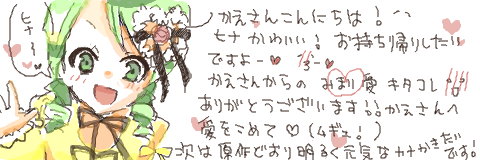 ヒナ〜
かえさんこんにちは！^^
ヒナかわいい！お持ち帰りしたい
ですよー
かえさんからの みまり愛 キタコレ
ありがとうございます!!かえさんへ
愛をこめて♡(ムギュ！)
次は原作どおり明るく元気なカナかきだです!